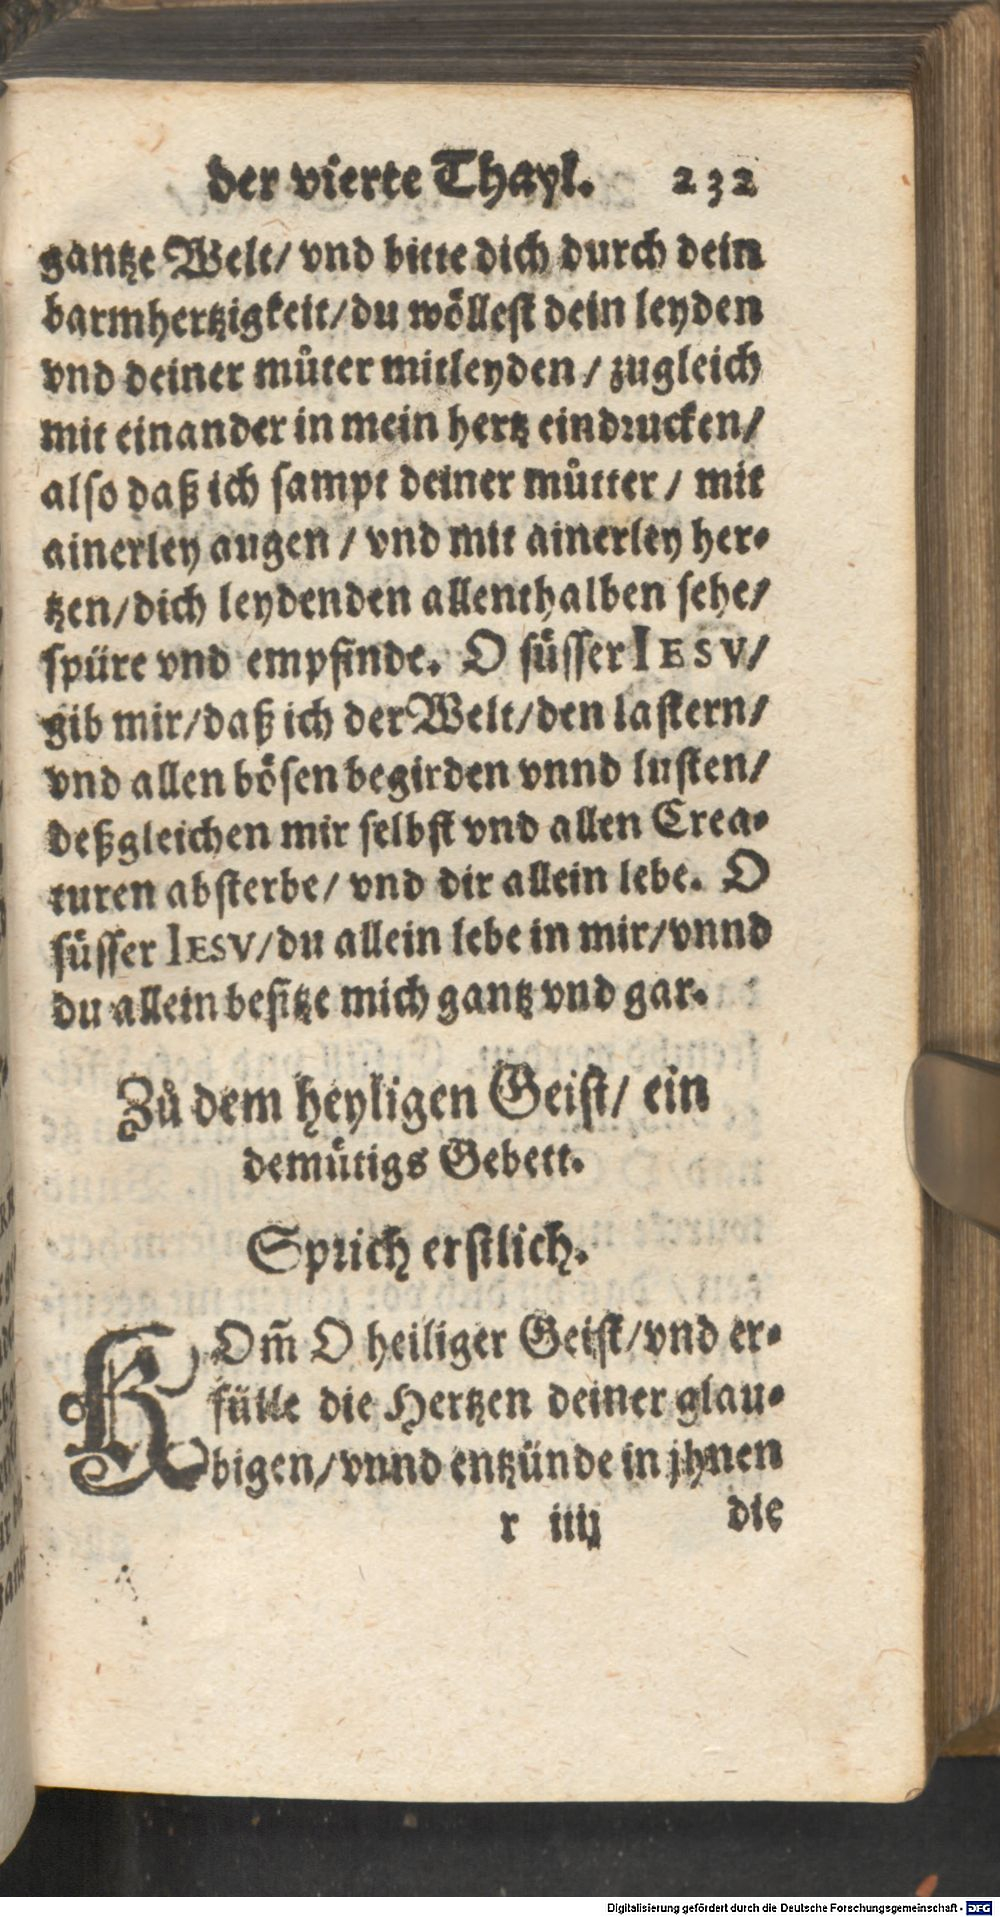 der vierte Thayl. 232
gantze Welt/ vnd bitte dich durch dein
barmhertzigkeit/ du wöllest dein leyden
vnd deiner můter mitleyden / zugleich
mit einander in mein hertz eindrucken/
also daß ich sampt deiner můtter / mit
ainerley augen / vnd mit ainerley her-
tzen/ dich leydenden allenthalben sehe/
spüre vnd empfinde. O süsser IESV/
gib mir/ daß ich der Welt/ den lastern/
vnd allen bösen begirden vnnd lusten/
deßgleichen mir selbst vnd allen Crea-
turen absterbe/ vnd dir allein lebe. O
süsser IESV/ du allein lebe in mir/ vnnd
du allein besitze mich gantz vnd gar.
Zů dem heyligen Geist/ ein
demütigs Gebett.
Sprich erstlich.
KOm̃ O heiliger Geist/ vnd er-
fülle die Hertzen deiner glau-
bigen/ vnnd entzünde in jhnen
r iiij die
Digitalisierung gefördert durch die Deutsche Forschungsgemeinschaft - DFG